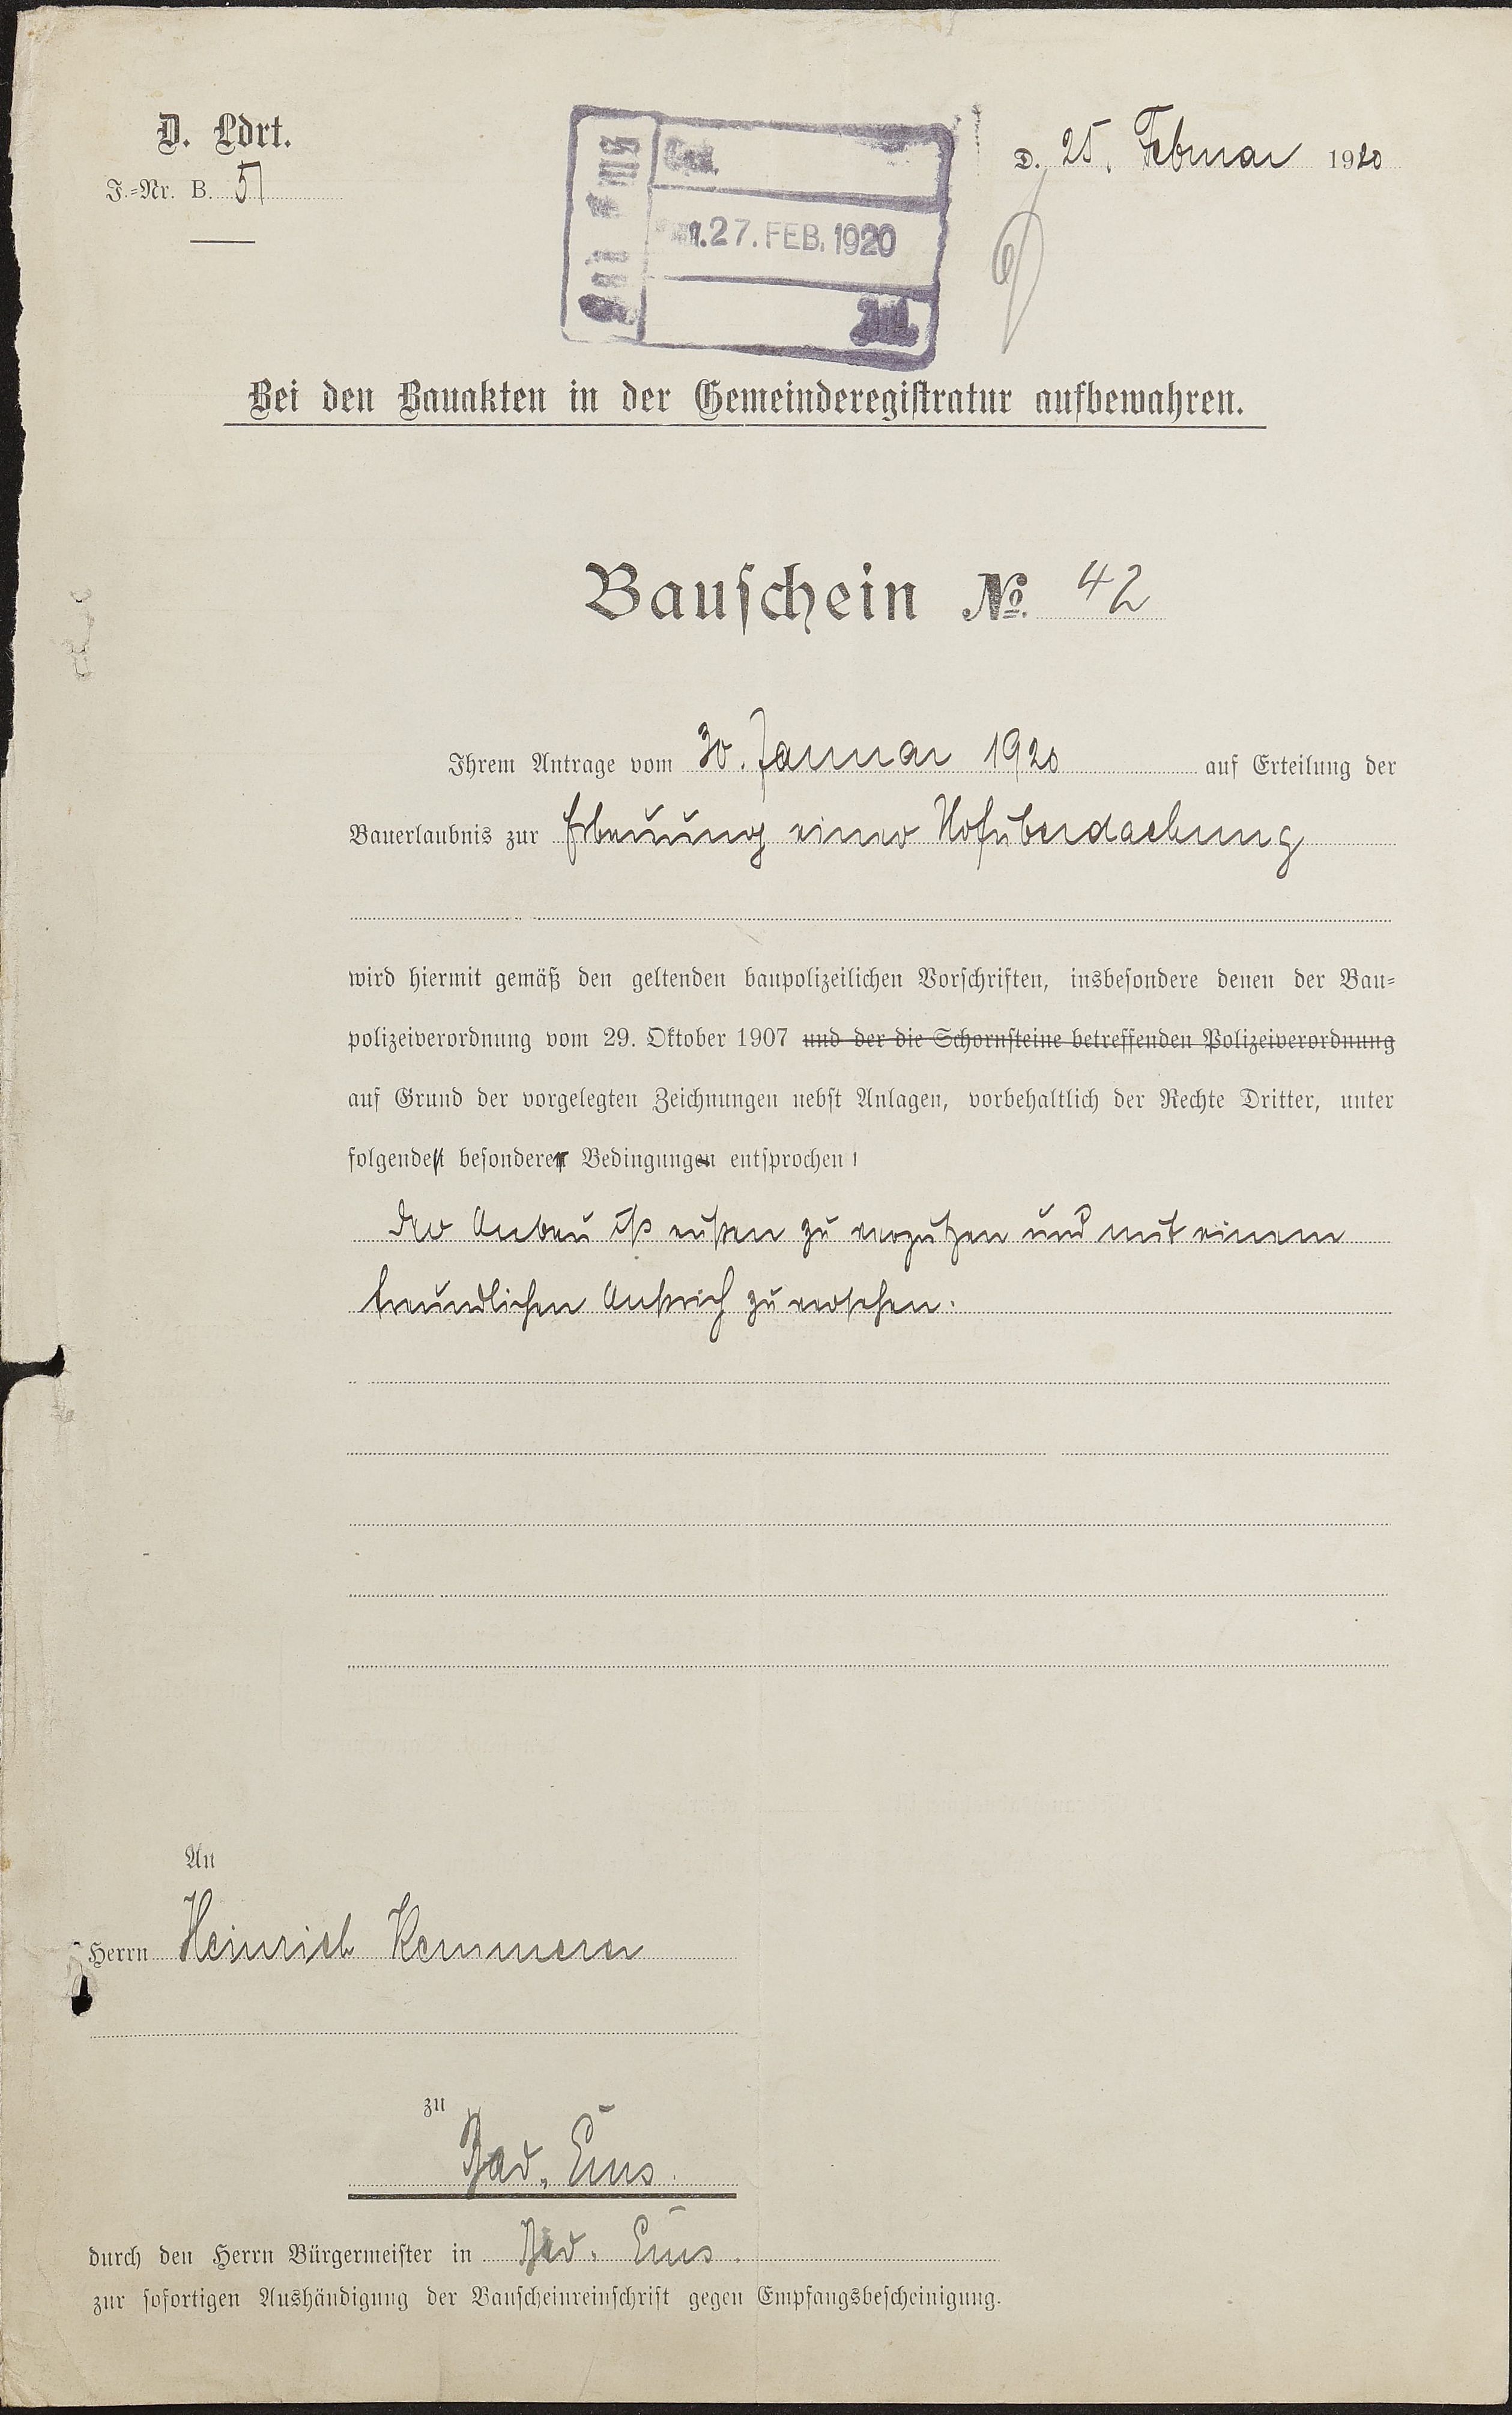 D. Ldrt.
J.-Nr. B. 51
D. 25. Februar 1920
27. FEB. 1920
Bei den Bauakten in der Gemeinderegistratur aufbewahren.
Bauschein No. 42
Ihrem Antrage vom 30. Januar 1920 auf Erteilung der
Bauerlaubnis zur Erbauung einer Hofüberdachung
wird hiermit gemäß den geltenden baupolizeilichen Vorschriften, insbesondere denen der Bau-
polizeiverordnung vom 29. Oktober 1907 und der die Schornsteine betreffenden Polizeiverordnung
auf Grund der vorgelegten Zeichnungen nebst Anlagen, vorbehaltlich der Rechte Dritter, unter
folgender besonderer Bedingung entsprochen:
Der Anbau ist außen zu verputzen und mit einem
freundlichen Anstrich zu versehen.
An
Herrn Heinrich Kemmerer
zu
Bad. Ems.
durch den Herrn Bürgermeister in Bad. Ems.
zur sofortigen Aushändigung der Bauscheinreinschrift gegen Empfangsbescheinigung.